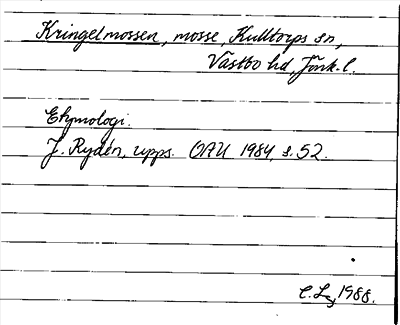 Kringelmossen, mosse, Kulltorps sn,
Västbo hd, Jönk. l.
Etymologi.
J. Rydén, upps. OAU 1984, s. 52.
1988.